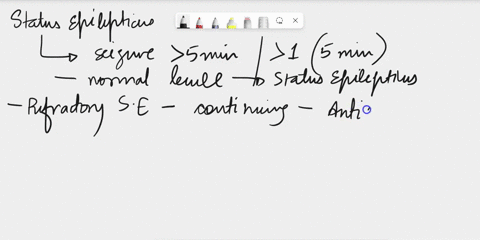 Status Epilepticus
↳ seizure >5min / >1 (5 min)
- normal levell → Status Epilepticus
- Rifradory S.E - continuing - Anti